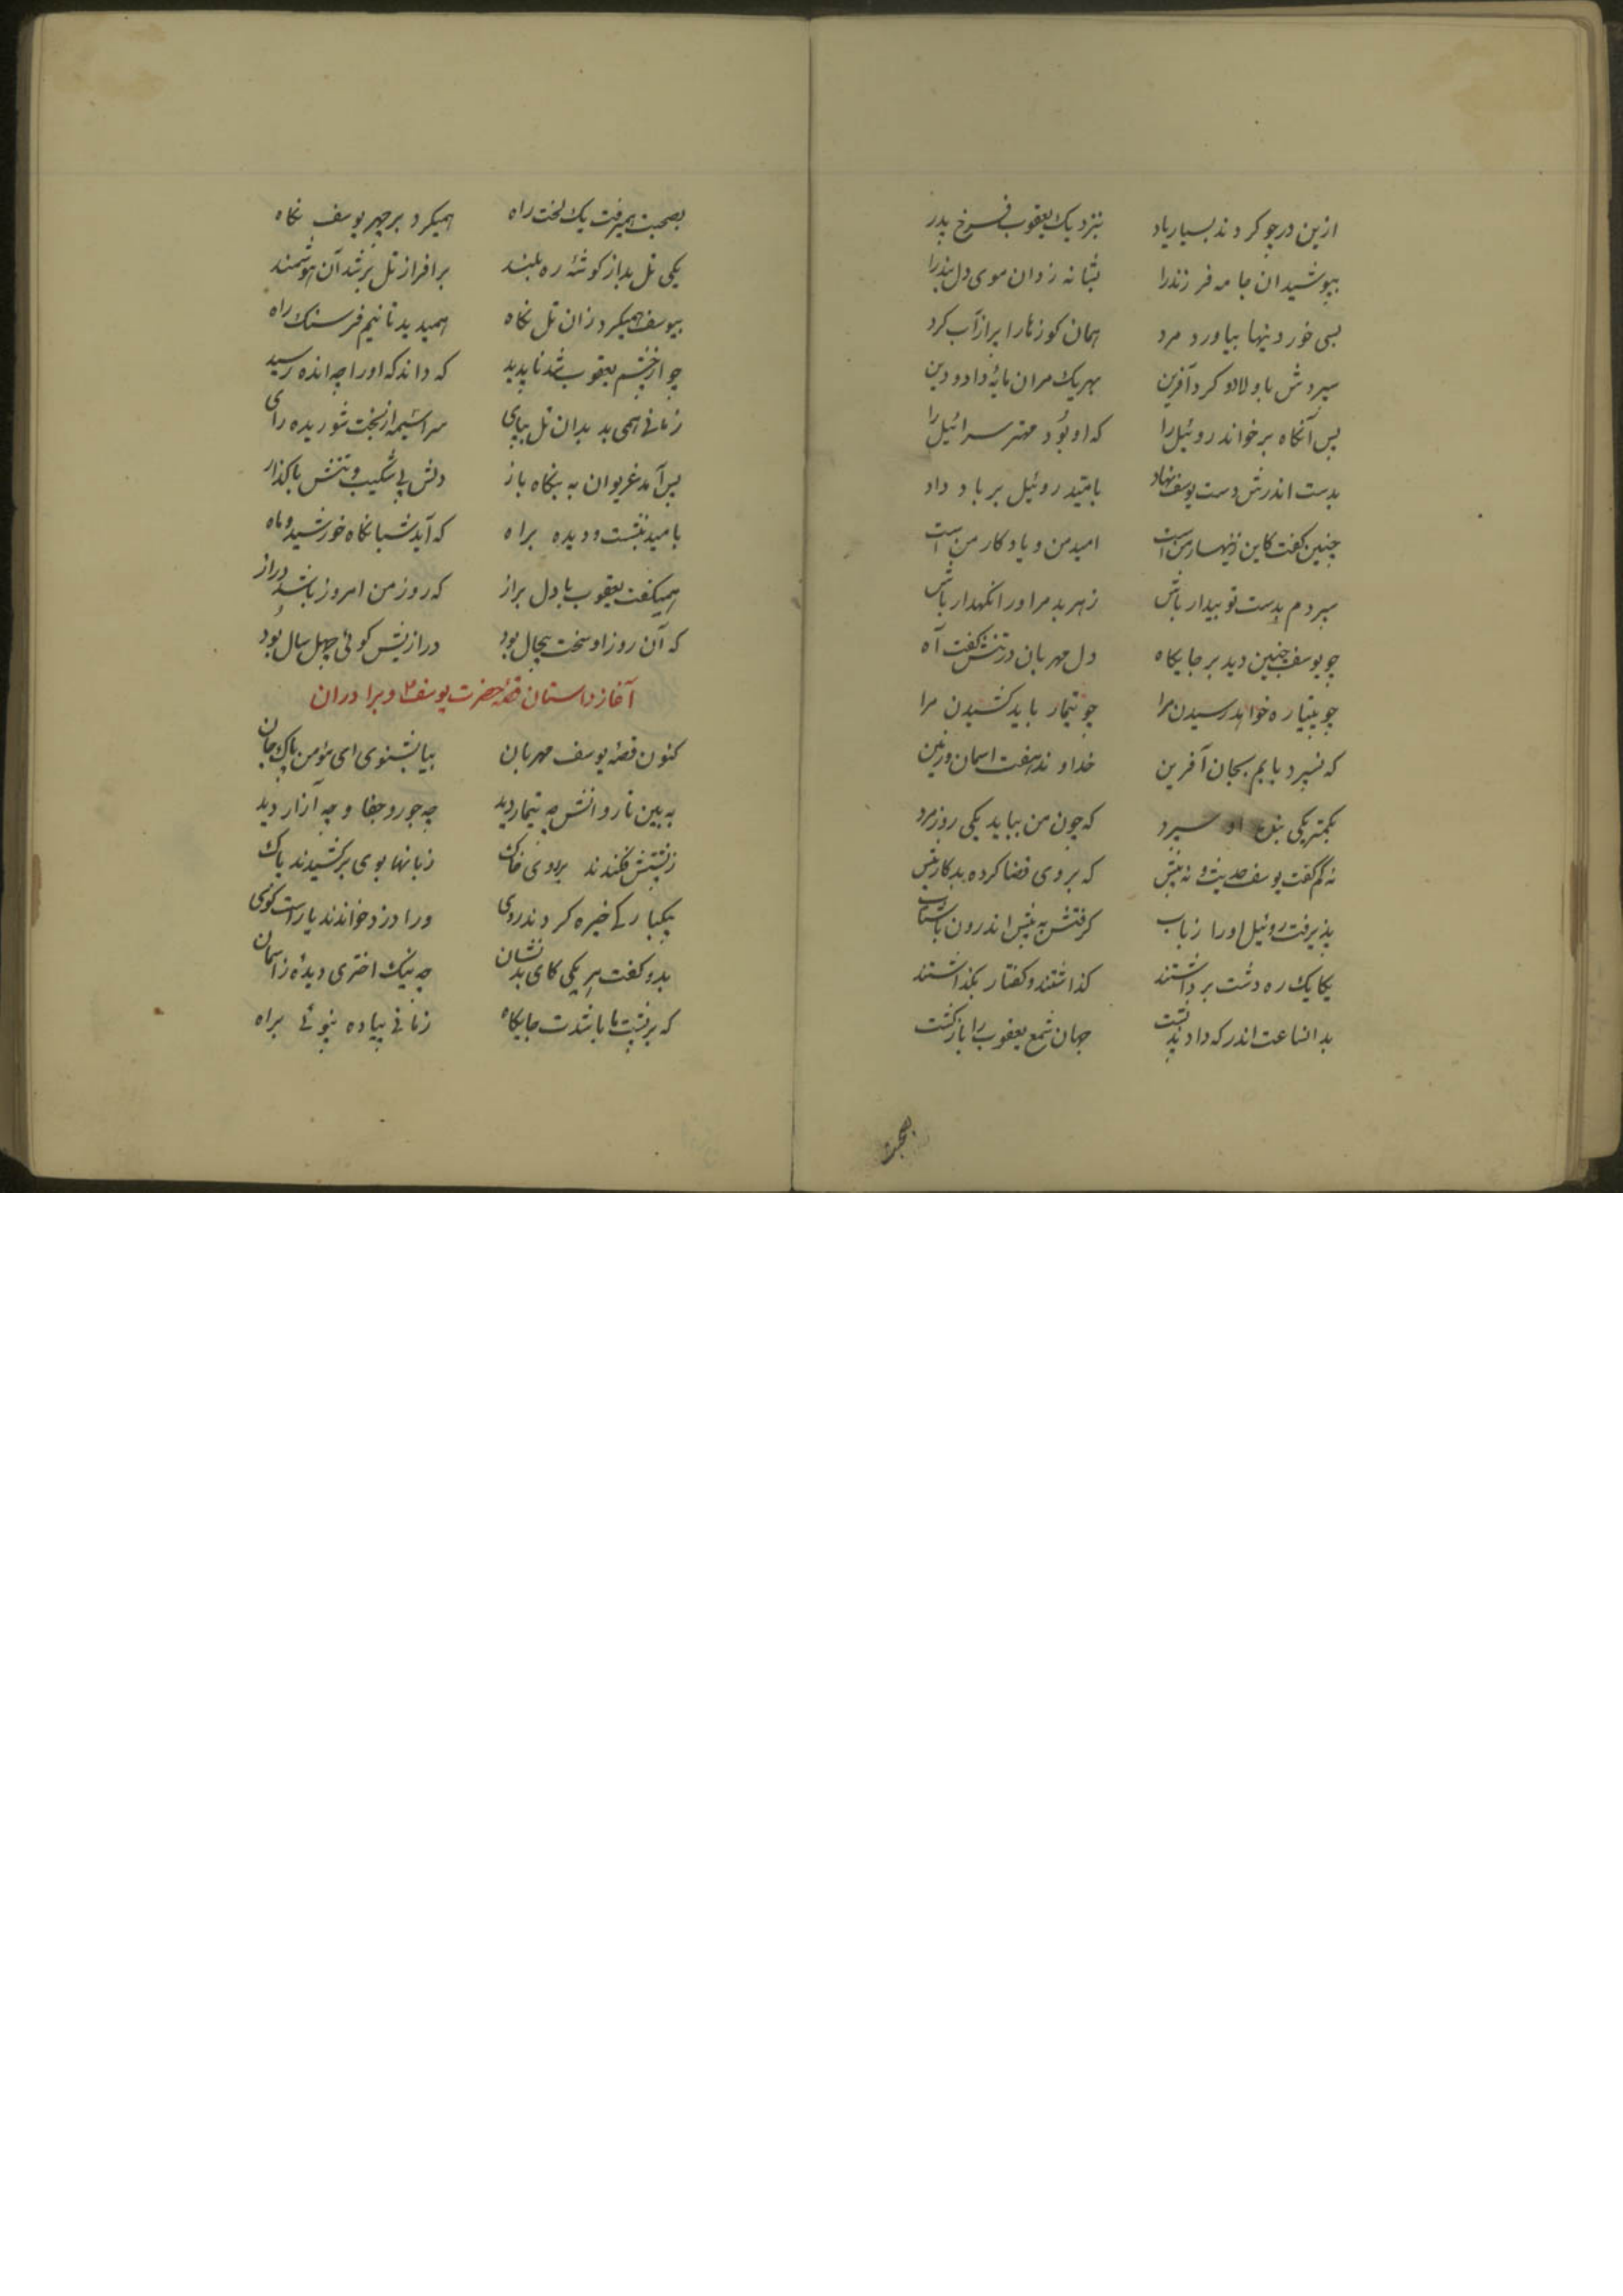 ازین در چو کردند بسیار یاد بنزدیک یعقوب فرخ پدر
بپوشید ان جامه فرزندرا بشانه زد ان موی دل‌بندرا
بسی خوردنیها بیاورد مرد همان کوزه‌ارا پر از آب کرد
سپردش باولاد و کرد آفرین بهریک مران مایهٔ داد و دین
پس آنکاه برخواند روئیل را که او بود مهتر سرائیل را
بدست اندرش دست یوسف نهاد بامید روئیل بر باد داد
چنین کفت کاین زینهار من است امید من و یادکار من است
سپردم بدست تو بیدار باش ز هر بد مر اورا نکهدار باش
چو یوسف چنین دید بر جایکاه دل مهربان در تنش کفت آه
چو پتیاره خواهد رسیدن مرا چو تیمار باید کشیدن مرا
که نسپرد بابم بجان آفرین خداوند هفت اسمان و زمین
بکمتر یکی سپرد که چون من بباید یکی روز مرد
نه کم کفت یوسف حدیث و نه بیش که بر وی قضا کرده بد کار بیش
پذیرفت روئیل اورا ز باب کرفتش به پیش اندرون باشتاب
یکایک ره دشت برداشتند کذاشتند و کفتار بکذاشتند
بدانساعت اندر که دادند پشت جهان شمع یعقوب را باز کشت
بصحبت
بصحبت همیرفت یک لخت راه همیکرد بر چهر یوسف نکاه
یکی تل بد از کوشهٔ ره بلند بر افراز تل بر شد آن هوشمند
بیوسف همیکرد زان تل نکاه همیدید تا نیم فرسنک راه
چو از چشم یعقوب شد ناپدید که داند که اورا چه انده رسید
زمانی همی بد بدان تل بپای سراسیمه از بخت شوریده رای
پس آمد غریوان به بنکاه باز دلش بی شکیب و تنش با کداز
بامید بنشست و دیده براه که آید شبانکاه خورشید و ماه
همیکفت یعقوب با دل براز که روز من امروز باشد دراز
که آن روز او سخت بیحال بود درازیش کوئی چهل سال بود
آغاز داستان قصهٔ حضرت یوسف۴ و برادران
کنون قصهٔ یوسف مهربان بیا بشنوی ای مؤمن پاک جان
به بین تا روانش چه تیمار دید چه جور و جفا و چه آزار دید
ز پشتش فکندند بر روی خاک زبانها بوی برکشیدند پاک
بیکبارکی خیره کردند روی ورا دزد خواندند یا راست کوی
بدو کفت هر یکی کای بد نشان چه نیک اختری دیدهٔ ز اسمان
که بر پشت ما باشدت جایکاه زمانی پیاده نپوئی براه